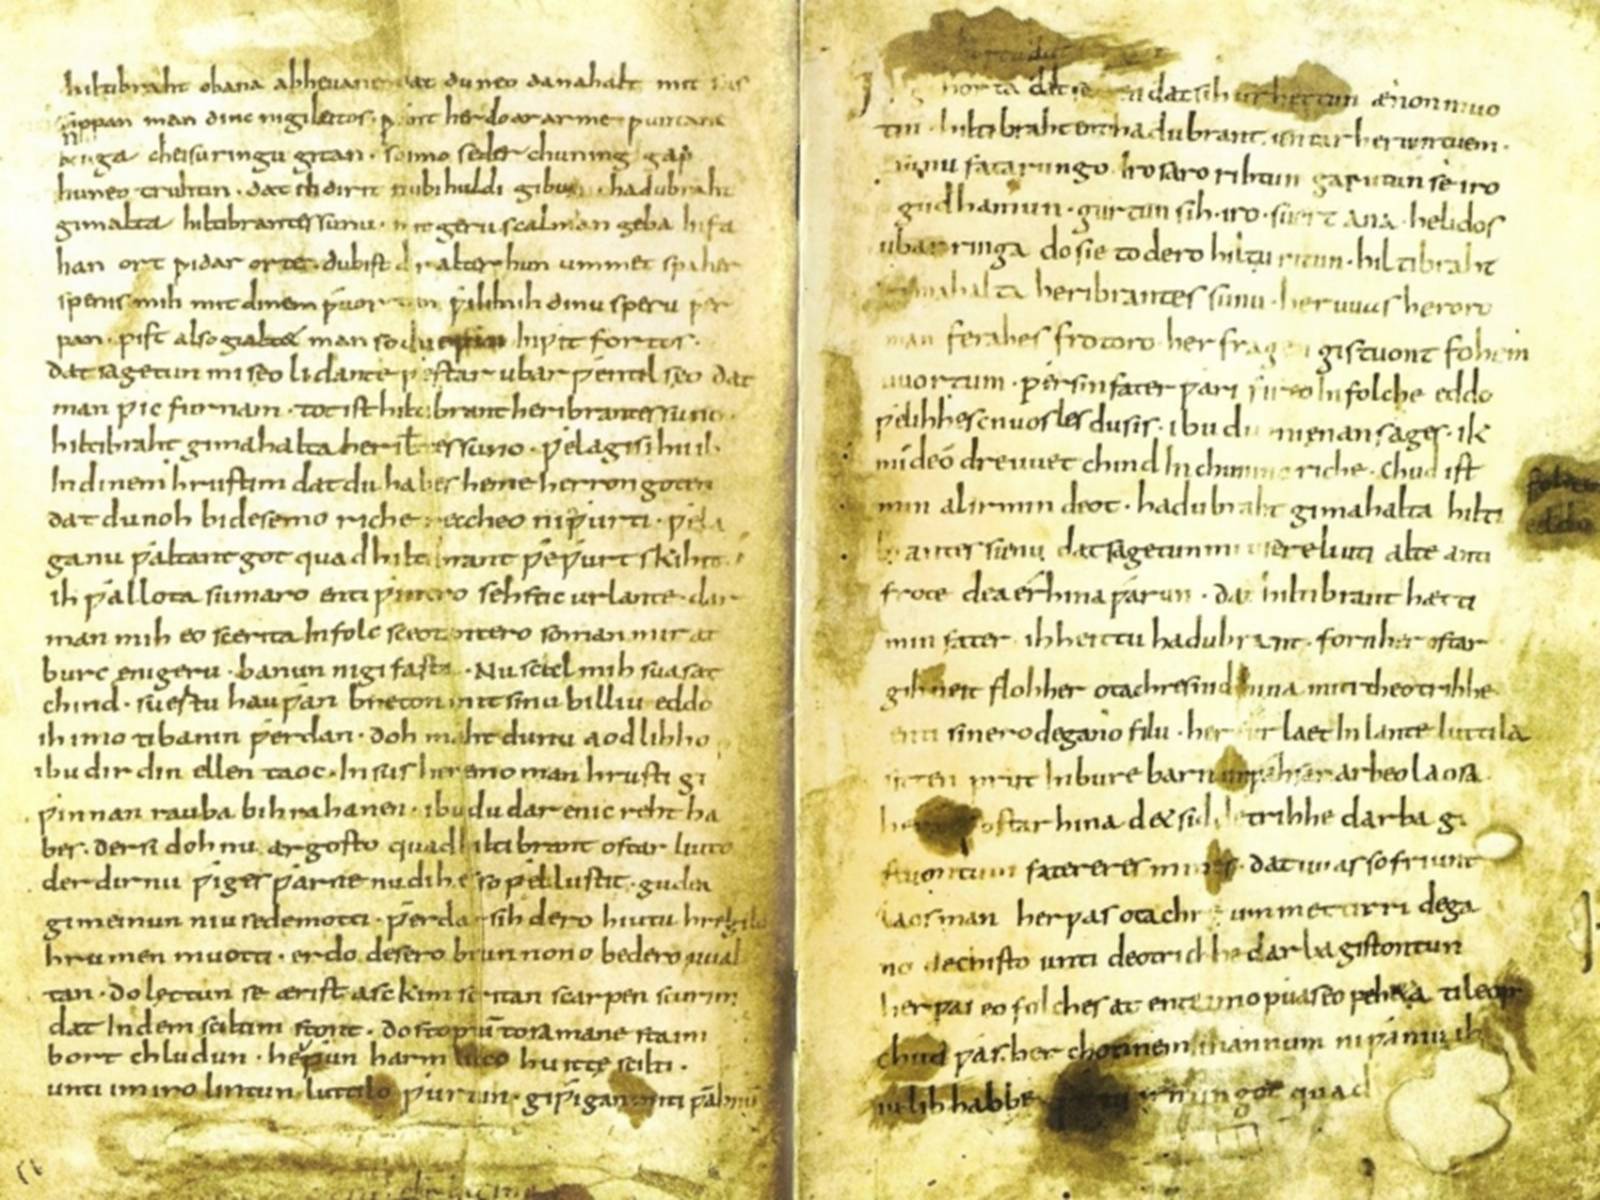 hiltibraht obana abhevane dat du neo danahalt mit
sippan man dinc nigileitos · ƿant her do ar arme ƿuntane
bauga cheisuringu gitan · so imo seder chuning gap
huneo truhtin · dat ih dir it nubi huldi gibu · hadubraht
gimalta hiltibrantes sunu · mit geru scal man geba infa
han ort ƿidar orte · du bist dir alter hun ummet spaher
spenis mih mit dinem ƿuortun ƿili mih dinu speru ƿer
pan · pist also gialtet man so du inƿit fortos ·
dat sagetun mi seolidante ƿestar ubar ƿentilseo dat
man ƿic furnam · tot ist hiltibrant heribrantes suno ·
hiltibraht gimahalta heribtes suno · ƿela gisihu ih
In dinem hrustim dat du habes heme herron goten
dat du noh bi desemo riche reccheo ni ƿurti · ƿela
ga nu ƿaltant got quad hiltibrant ƿeƿurt skihit ·
ih ƿallota sumaro enti ƿintro sehstic ur lante · dar
man mih eo scerita In folc sceotantero so man mir at
burc enigeru · banun ni gifasta · Nu scal mih suasat
chind · suertu hauƿan breton mit sinu billiu eddo
ih imo ti banin ƿerdan · doh maht du nu aodlihho
ibu dir din ellen taoc · In sus heremo man hrusti gi
ƿinnan rauba bihrahanen · ibu du dar enic reht ha
bes · der si doh nu argosto quad hiltibrant ostarliuto
der dir nu ƿiges ƿarne nu dih es so ƿel lustit · gudea
gimeinun niuse de motti · ƿerdar sih dero hiutu hregilo
hrumen muotti · erdo desero brunnono bedero uual
tan · do lęttun se ærist asckim scritan scarpen scurim
dat In dem sciltim stont · do stoptū to samane staim
bort chludun · heƿun harmlicco huitte scilti ·
unti im iro lintun luttilo ƿurtun · giƿigan miti ƿabnū
Ik gihorta dat seggen dat sih urhettun ænon muo
tin · hiltibraht enti hadubrant · untar heriun tuem ·
sunu fatarungo · iro saro rihtun garutun se iro
gudhamun · gurtun sih · iro · suert ana · helidos
ubar ringa do sie to dero hiltu ritun · hiltibraht
gimahalta heribrantes sunu · her uuas heroro
man ferahes frotoro · her fragen gistuont fohem
uuortum · ƿer sin fater ƿari fireo In folche eddo
ƿelihhes cnuosles du sis · ibu du mi enan sages · ik
mi de odre uuet chind In chunincriche · chud ist
min al irmindeot · hadubraht gimahalta hilti
brantes sunu dat sagetun mi usere liuti alte anti
frote dea erhina ƿarun · dat hiltibrant hætti
min fater · ih heittu hadubrant · forn her ostar
gihueit floh her otachres nid hina miti theotrihhe
enti sinero degano filu · her furlaet In lante luttila
sitten prut In bure barn unƿahsan arbeo laosa
her ostar hina det sid detrihhe darba gi
stuontum fatereres mines · dat uuas so friunt
laos man her ƿas otachre ummet tirri dega
no dechisto unti deotrichhe darba gistontun
her ƿas eo folches at ente imo ƿuas eo peheta ti leop
chud ƿas her chonnem mannum ni ƿaniu ih
iu lib habbe ƿettu irmingot quad